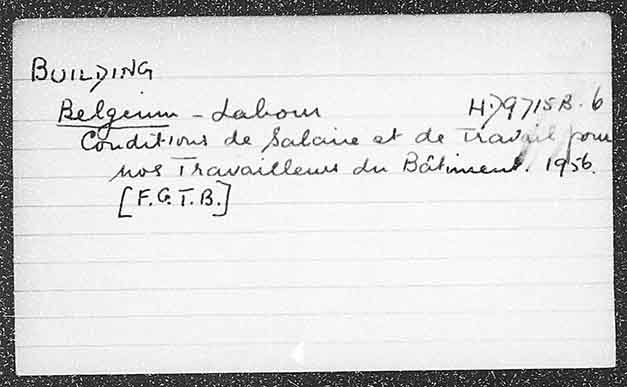 BUILDING
Belgium - Labour HD9715B.6
Conditions de Salaire et de Travail pour
nos Travailleurs du Bâtiment. 1956.
[F.G.T.B.]